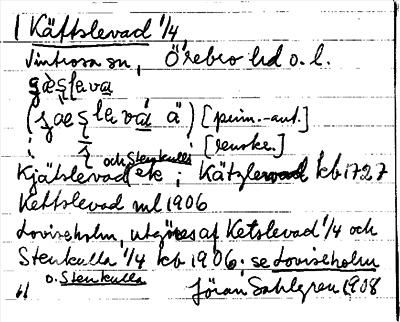 Käftslevad 1/4,
Vintrosa sn, Örebro hd o. l.
ʒæs̨leva
(ʒæs̨levá ä) [prim.-ant.]
i [renske.]
Kjätslevad och Stenkulla ek; Kätzlevad kb 1727
Kettslevad ml 1906
Loviseholm, utgöres af Ketslevad 1/4 och
Stenkulla 1/4 kb 1906; se Loviseholm
o. Stenkulla
Jöran Sahlgren 1908